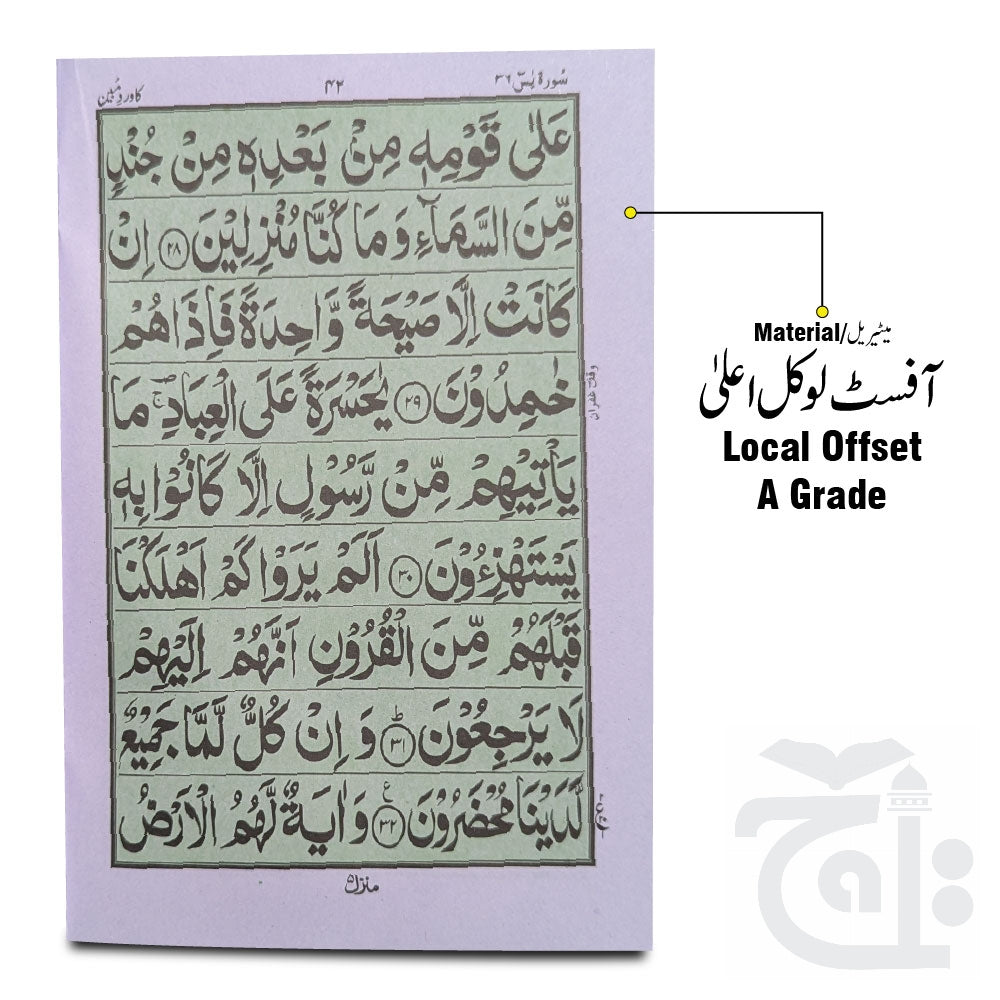 سورة يٰسٓ ٣٦
٤٢
عَلٰى قَوْمِهٖ مِنْۢ بَعْدِهٖ مِنْ جُنْدٍ
مِّنَ السَّمَآءِ وَمَا كُنَّا مُنْزِلِيْنَ ٢٨ اِنْ
كَانَتْ اِلَّا صَيْحَةً وَّاحِدَةً فَاِذَا هُمْ
خٰمِدُوْنَ ٢٩ يٰحَسْرَةً عَلَى الْعِبَادِ ۚ مَا
يَاْتِيْهِمْ مِّنْ رَّسُوْلٍ اِلَّا كَانُوْا بِهٖ
يَسْتَهْزِءُوْنَ ٣٠ اَلَمْ يَرَوْا كَمْ اَهْلَكْنَا
قَبْلَهُمْ مِّنَ الْقُرُوْنِ اَنَّهُمْ اِلَيْهِمْ
لَا يَرْجِعُوْنَ ٣١ ؕ وَ اِنْ كُلٌّ لَّمَّا جَمِيْعٌ
لَّدَيْنَا مُحْضَرُوْنَ ٣٢ ع وَاٰيَةٌ لَّهُمُ الْاَرْضُ
منزل ٥
Material/میٹیریل
آفسٹ لوکل اعلیٰ
Local Offset
A Grade